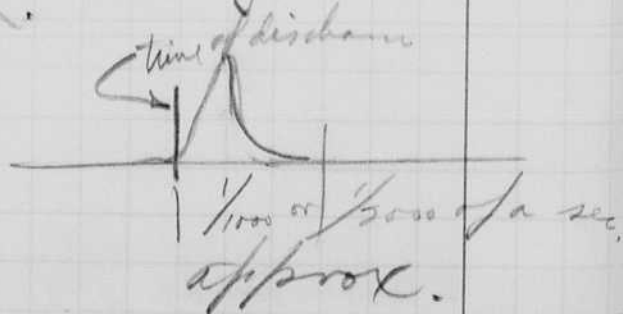 time of discharge
1/1000 or 1/2000 of a sec.
approx.